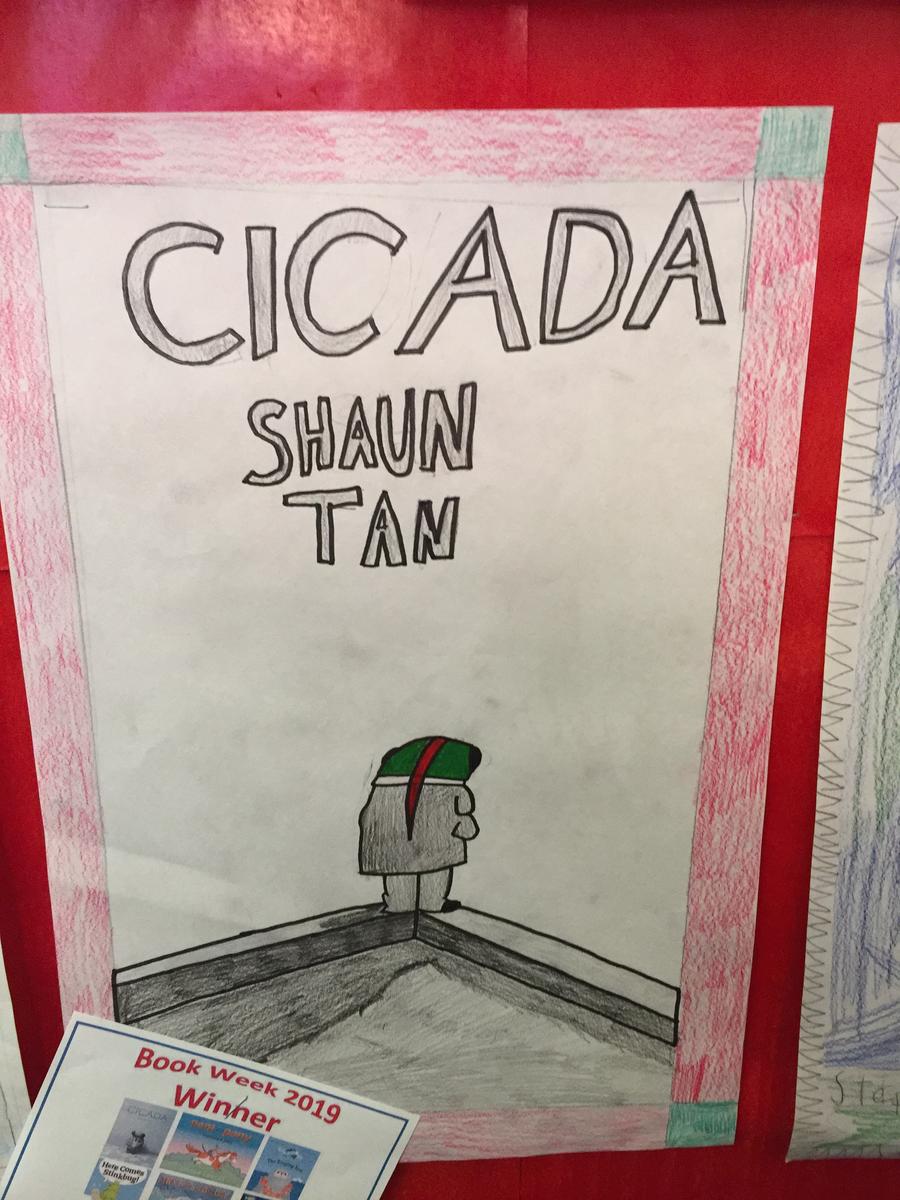 CICADA
SHAUN
TAN
Book Week 2019
Winner
CICADA
Here Comes
Stinkbug!